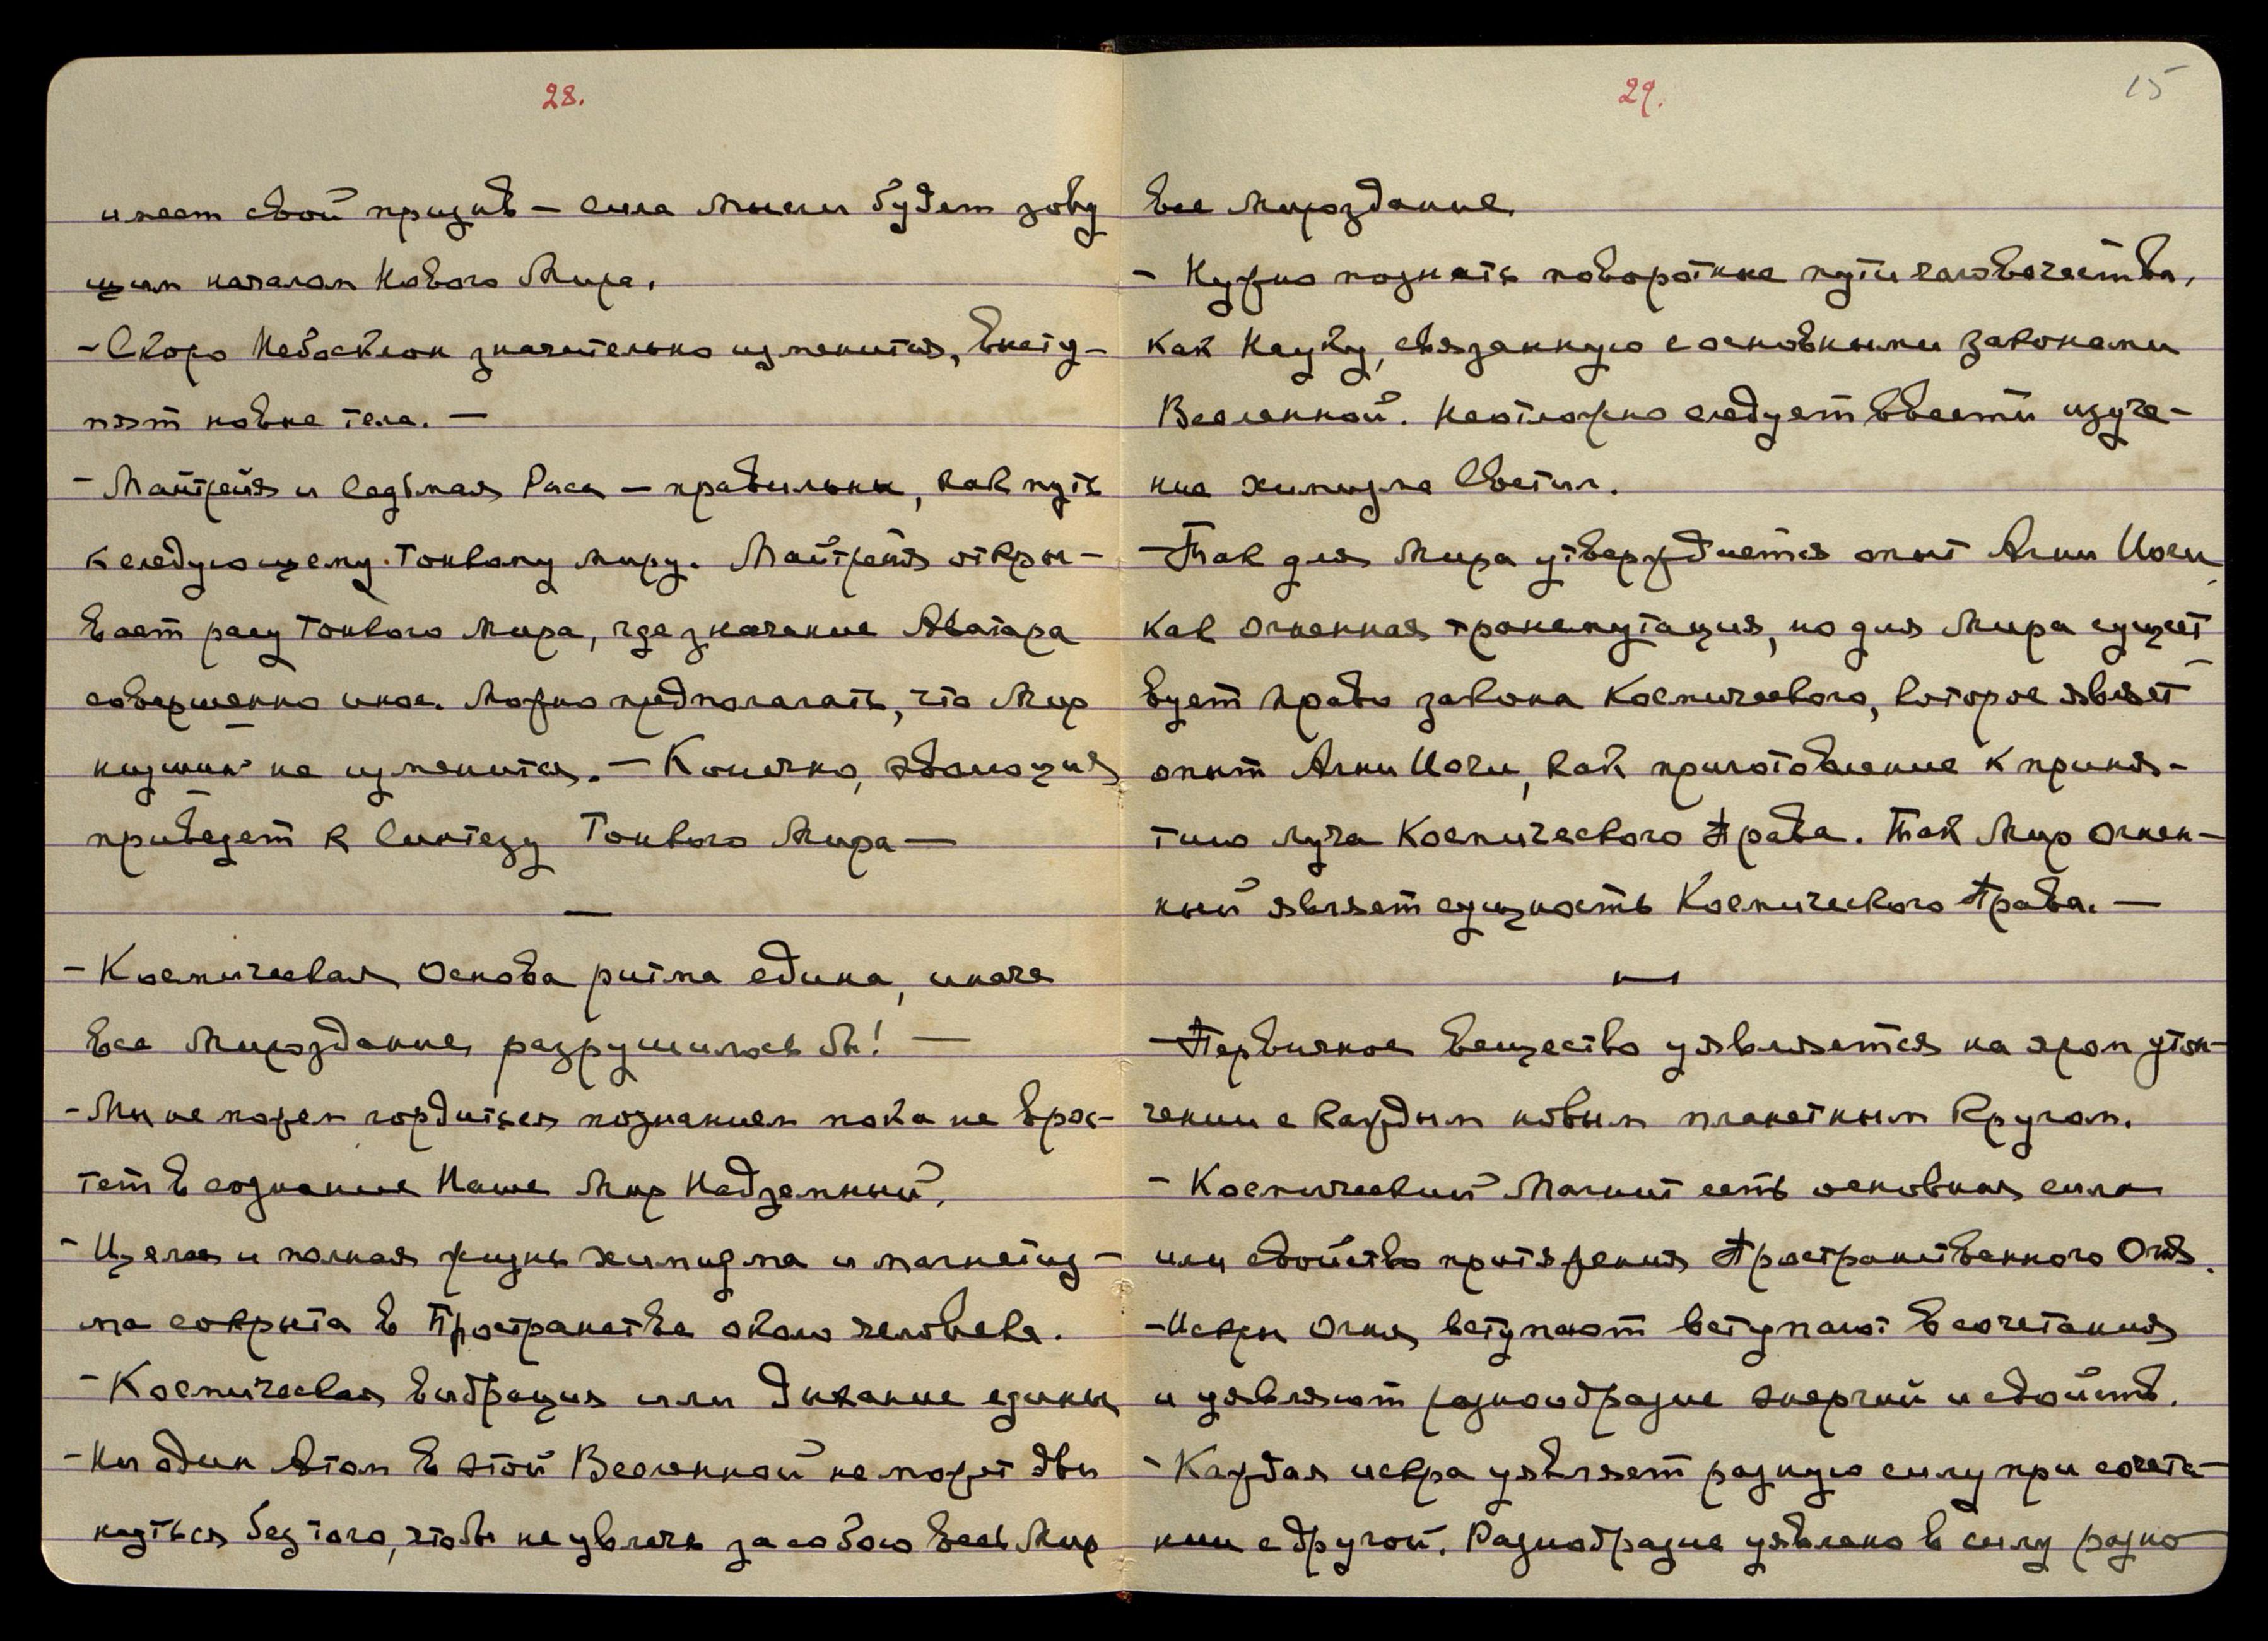 28.
имеет свой призыв – сила мысли будет зову
щим началом Нового Мира.
- Скоро Небосклон значительно изменится, вступ-
пят новые тела. —
- Майтрейя и Седьмая Раса – правильны, как путь
к следующему Тонкому миру. Майтрейя откры-
вает расу Тонкого Мира, где значение Аватара
совершенно иное. Можно предполагать, что Мир
низший не изменится. – Конечно, эволюция
приведет к Синтезу Тонкого Мира —
—
- Космическая Основа ритма едина, иначе
все Мироздание разрушилось бы! —
- Мы не можем гордиться познанием пока не врос-
тет в сознание Наше Мир Надземный.
- Целая и полная жизнь химизма и магнетиз-
ма сокрыта в Пространстве около человека.
- Космическая Вибрация или Дыхание едины
- Ни один Атом в этой Вселенной не может дви
нуться без того, чтобы не увлечь за собою весь Мир
29.
15
все Мироздание.
- Нужно познать поворотные пути человечества,
как Науку, связанную с основными законами
Вселенной. Неотложно следует ввести изуче-
ние химизма Светил.
- Так для Мира утверждается опыт Агни Йоги,
как огненная трансмутация, но для Мира сущест
вует право закона Космического, которое являет
опыт Агни Йоги, как приготовление к приня-
тию луча Космического Права. Так Мир Огнен-
ный являет сущность Космического Права. —
—
- Первичное вещество уявляется на яром утон-
чении с каждым новым планетным Кругом.
- Космический Магнит есть основная сила
или свойство притяжения Пространственного Огня.
- Искры Огня вступают вступают в сочетания
и уявляют разнообразие энергий и свойств.
- Каждая искра уявляет разную силу при сочета-
нии с другой. Разнообразие уявлено в силу разно